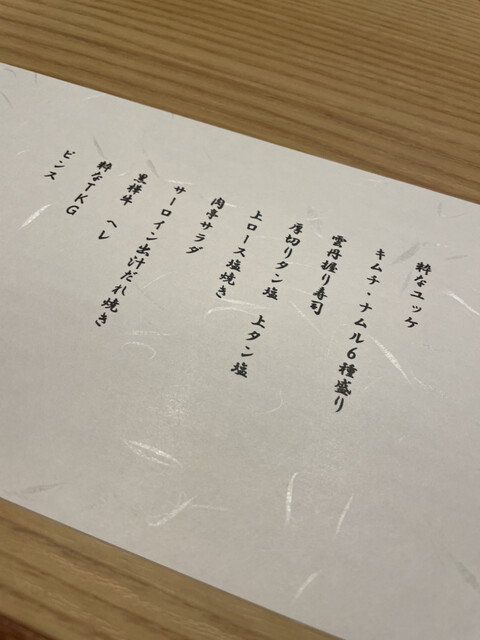 粋なユッケ
キムチ・ナムル6種盛り
雲丹握り寿司
厚切りタン塩　上タン塩
上ロース塩焼き
肉亭サラダ
サーロイン出汁だれ焼き
黒樺牛　ヘレ
粋なTKG
ビンス